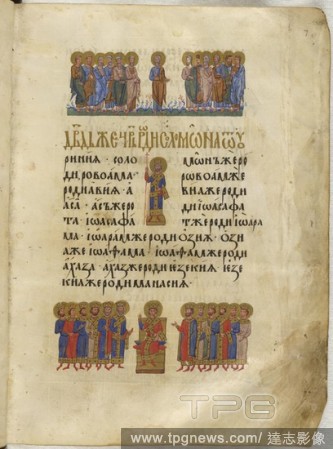 ДВДЬ ЖЕ ЦРЬ РОДИ СОЛОМОНА Ѿ ОУ
рииния · соло мѡнъ жеро
ди, ровоама ровоамже
роди авия · а виа жероди
аса · аса жеро ди іѡасафа
та · іѡасафа тже роди іѡара
ма · іѡарам жероди ѻзиѧ · ѻзи
а же іѡафама · іѡафам жероди
ахаза · ахаз жероди іезекия · іезе
кия жероди манасия ·
TPG
www.tpgnews.com/達志影像